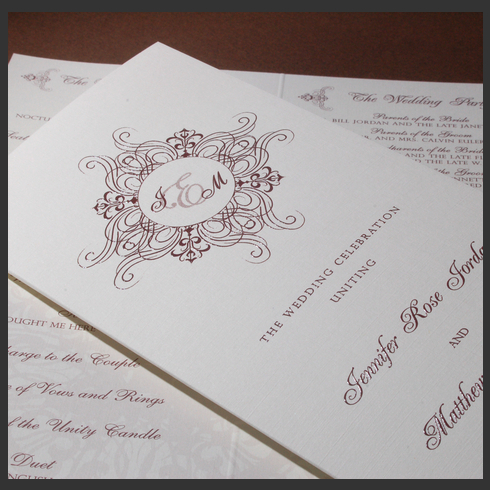 J E M
THE WEDDING CELEBRATION
UNITING
Jennifer Rose Jorda
AND
Matthew
The
NOCTU
The Wedding Part
Parents of the Bride
BILL JORDAN AND THE LATE JANE
Parents of the Groom
MR. AND MRS. CALVIN EULER
parents of the Bride
AND THE LATE F
of the Groom
AND THE LATE W.
OUGHT ME HERE
harge to the Couple
e of Vows and Rings
f the Unity Candle
Duet